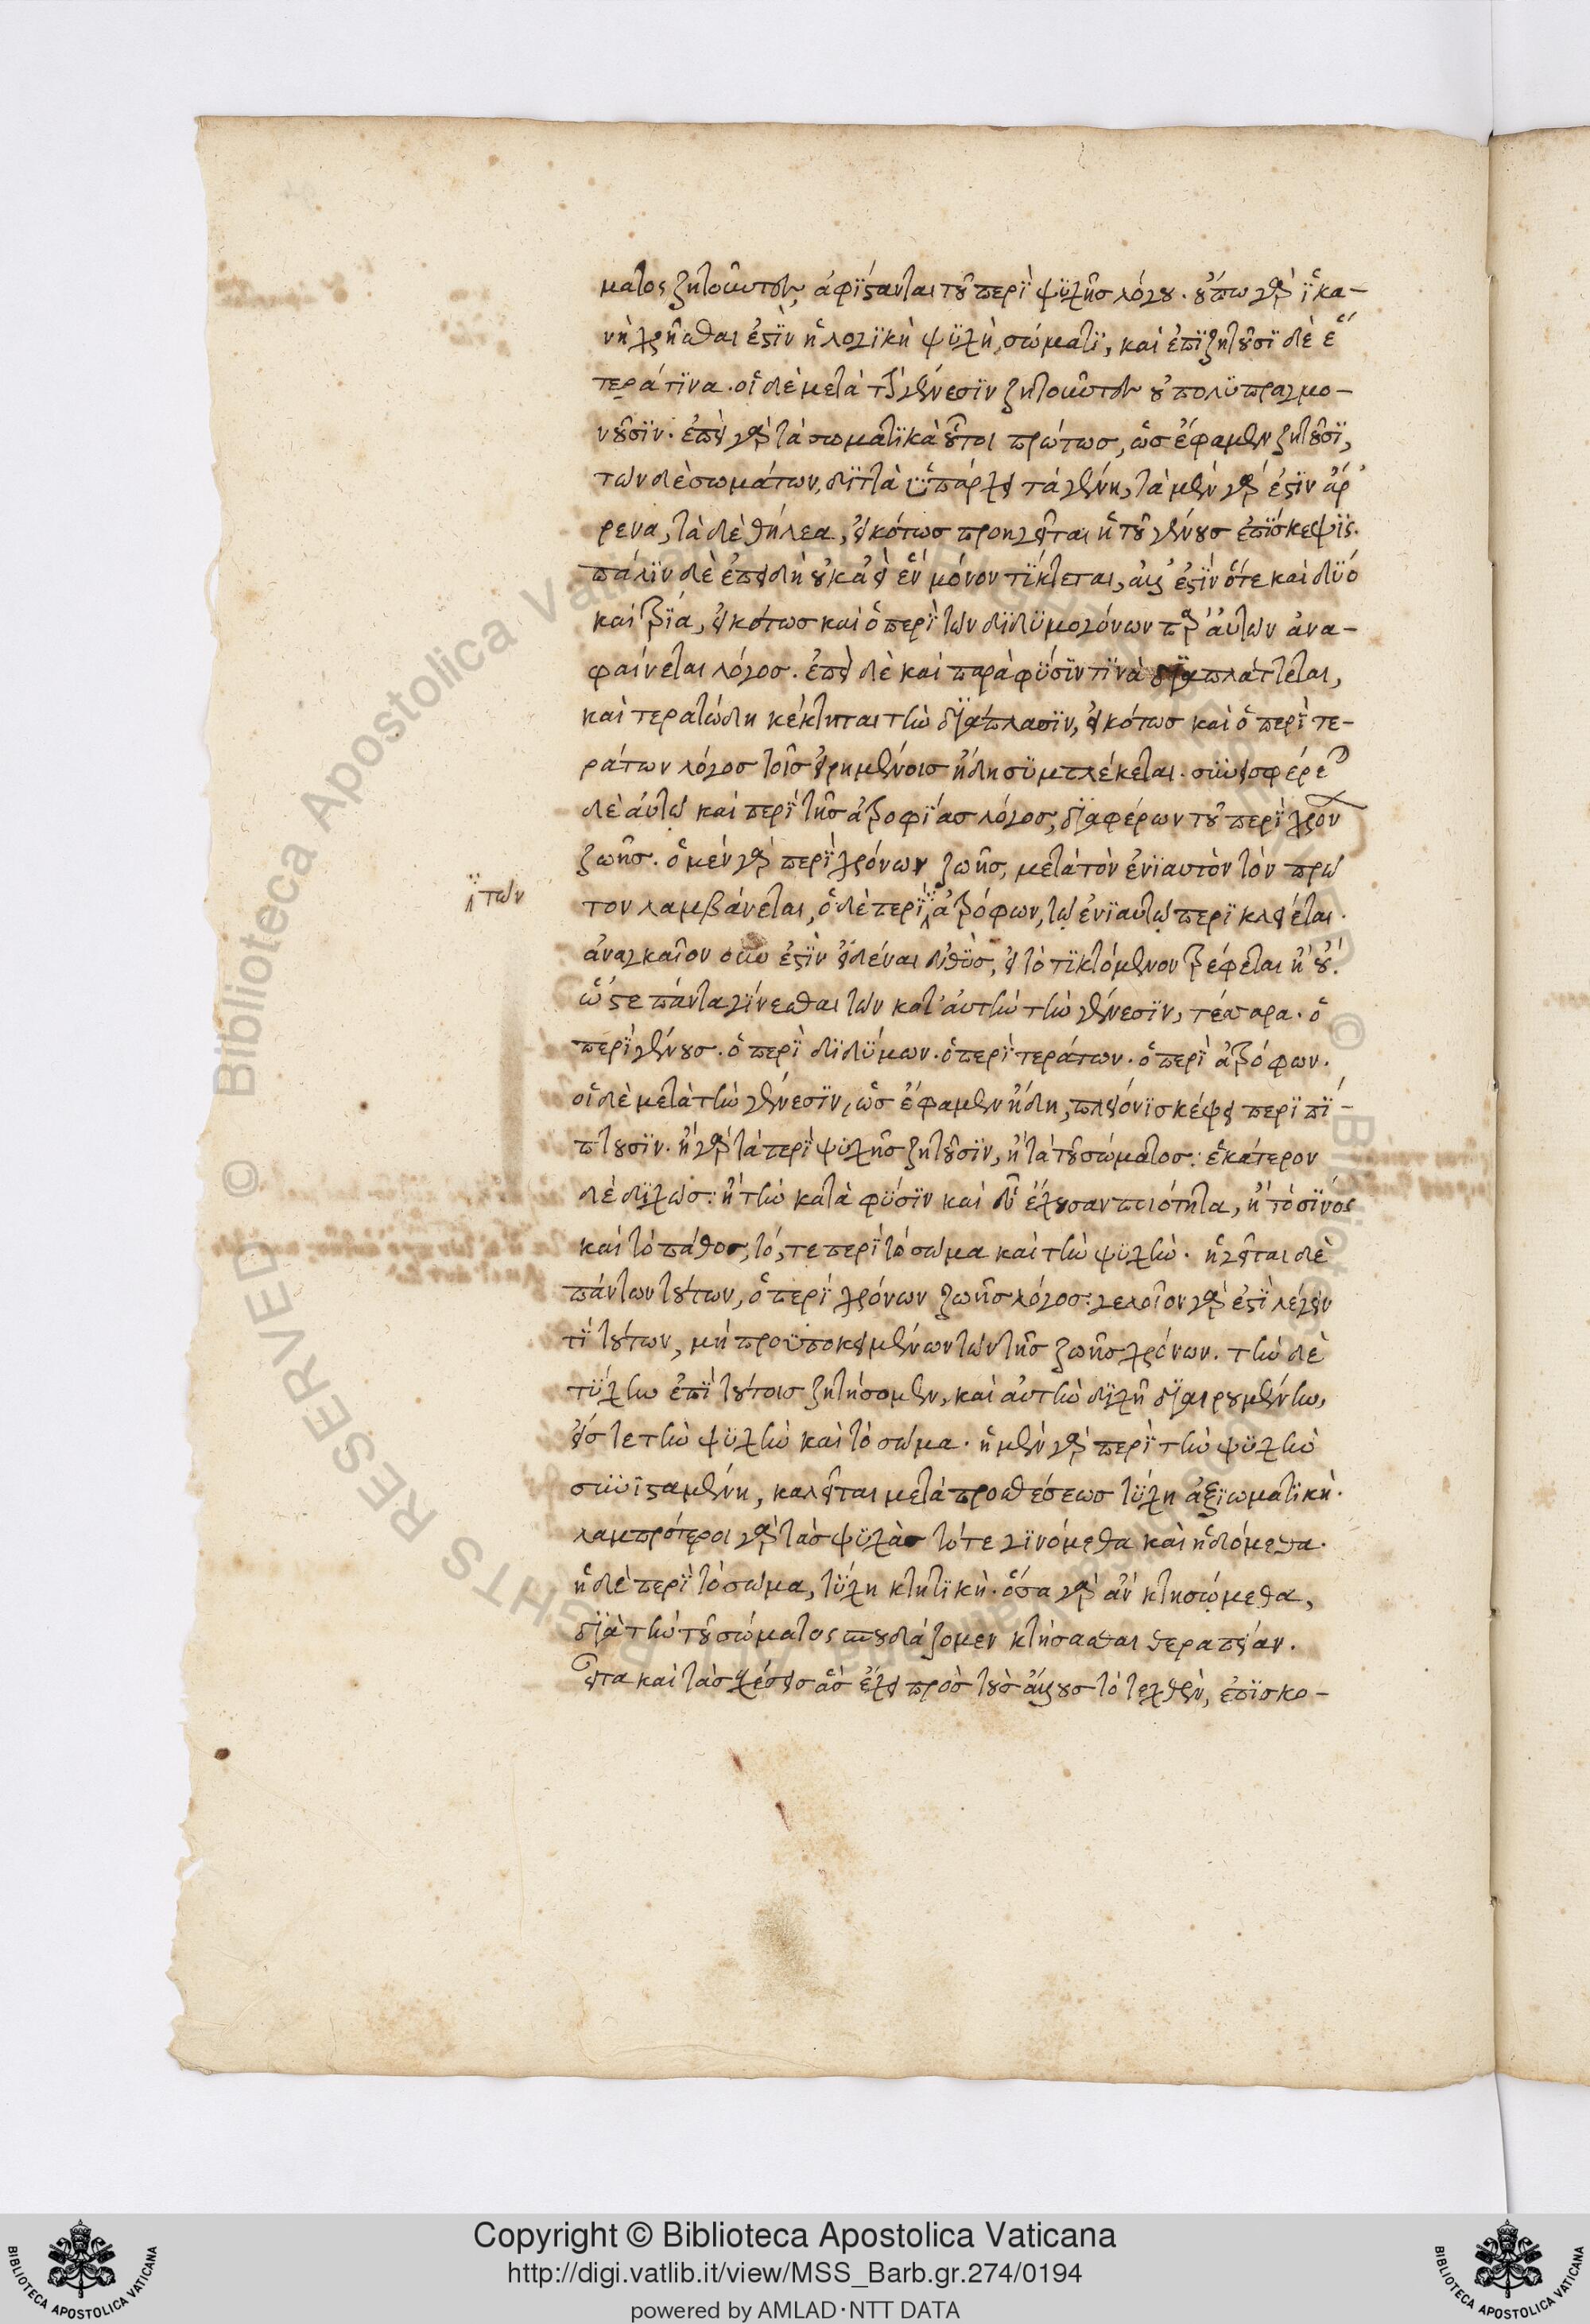 ματος ζητοῦντες, ἀφίστανται τοῦ περὶ ψυχῆς λόγου. οὔπω γὰρ ἱκα-
νὴ χρῆσθαι ἐστὶν ἡ λογικὴ ψυχὴ, σώματι, καὶ ἐπιζητοῦσι δὲ ἕ
τερά τινα. οἱ δὲ μετὰ τὴν γένεσιν ζητοῦντες οὐ πολυπραγμο-
νοῦσιν. ἐπεὶ γὰρ τὰ σωματικὰ οὗτοι πρώτως, ὡς ἔφαμεν ζητοῦσι,
τῶν δὲ σωμάτων, διττὰ ὑπάρχει τὰ γένη, τὰ μὲν γάρ ἐστιν ἄρ
ρενα, τὰ δὲ θήλεα, εἰκότως προηγεῖται ἡ τοῦ γένους ἐπίσκεψις.
πάλιν δὲ ἐπειδὴ οὐκ ἀεὶ ἓν μόνον τίκτεται, ἀλλ' ἐστὶν ὅτε καὶ δύο
καὶ τρία, εἰκότως καὶ ὁ περὶ τῶν διδυμογόνων παρ' αὐτῶν ἀνα-
φαίνεται λόγος. ἐπεὶ δὲ καὶ παρὰ φύσιν τινὰ διαπλάττεται,
καὶ τερατώδη κέκτηται τὴν διάπλασιν, εἰκότως καὶ ὁ περὶ τε-
ράτων λόγος τοῖς εἰρημένοις ἤδη συμπλέκεται. συνεισφέρεται
δὲ αὐτῷ καὶ περὶ τῆς ἀτροφίας λόγος, διαφέρων τοῦ περὶ χρόνων
ζωῆς. ὁ μὲν γὰρ περὶ χρόνων ζωῆς, μετὰ τὸν ἐνιαυτὸν τὸν πρῶ
τον λαμβάνεται, ὁ δὲ περὶ ἀτρόφων, τῷ ἐνιαυτῷ περικλείεται.
των
ἀναγκαῖον οὖν ἐστὶν εἰδέναι εὐθὺς, εἰ τὸ τικτόμενον τρέφεται ἢ οὔ.
ὥστε πάντα γίνεσθαι τῶν κατ' αὐτὴν τὴν γένεσιν, τέσσαρα. ὁ
περὶ γένους. ὁ περὶ διδύμων. ὁ περὶ τεράτων. ὁ περὶ ἀτρόφων.
οἱ δὲ μετὰ τὴν γένεσιν, ὡς ἔφαμεν ἤδη, πλείονι σκέψει περιπί-
πτουσιν. ἢ γὰρ τὰ περὶ ψυχῆς ζητοῦσιν, ἢ τὰ τοῦ σώματος: ἑκάτερον
δὲ διχῶς: ἢ τὴν κατὰ φύσιν καὶ εὖ ἔχουσαν ποιότητα, ἢ τὸ σίνος
καὶ τὸ πάθος, τό, τε περὶ τὸ σῶμα καὶ τὴν ψυχὴν. ἡγεῖται δὲ
πάντων τούτων, ὁ περὶ χρόνων ζωῆς λόγος: γελοῖον γάρ ἐστι λέγειν
τὶ τούτων, μὴ προϋποκειμένων τῶν τῆς ζωῆς χρόνων. τὴν δὲ
τύχην ἐπὶ τούτοις ζητήσομεν, καὶ αὐτὴν διχῆ διαιρουμένην,
εἴς τε τὴν ψυχὴν καὶ τὸ σῶμα. ἡ μὲν γὰρ περὶ τὴν ψυχὴν
συνισταμένη, καλεῖται μετὰ προσθέσεως τύχη ἀξιωματικὴ.
λαμπρότεροι γὰρ τὰς ψυχὰς τότε γινόμεθα καὶ ἡδόμεθα.
ἡ δὲ περὶ τὸ σῶμα, τύχη κτητικὴ. ὅσα γὰρ ἂν κτησώμεθα,
διὰ τὴν τοῦ σώματος σπουδάζομεν κτήσασθαι θεραπείαν.
εἶτα καὶ τὰς σχέσεις ἃς ἔχει πρὸς τοὺς ἄλλους τὸ τεχθὲν, ἐπισκο-
Copyright © Biblioteca Apostolica Vaticana
http://digi.vatlib.it/view/MSS_Barb.gr.274/0194
powered by AMLAD·NTT DATA